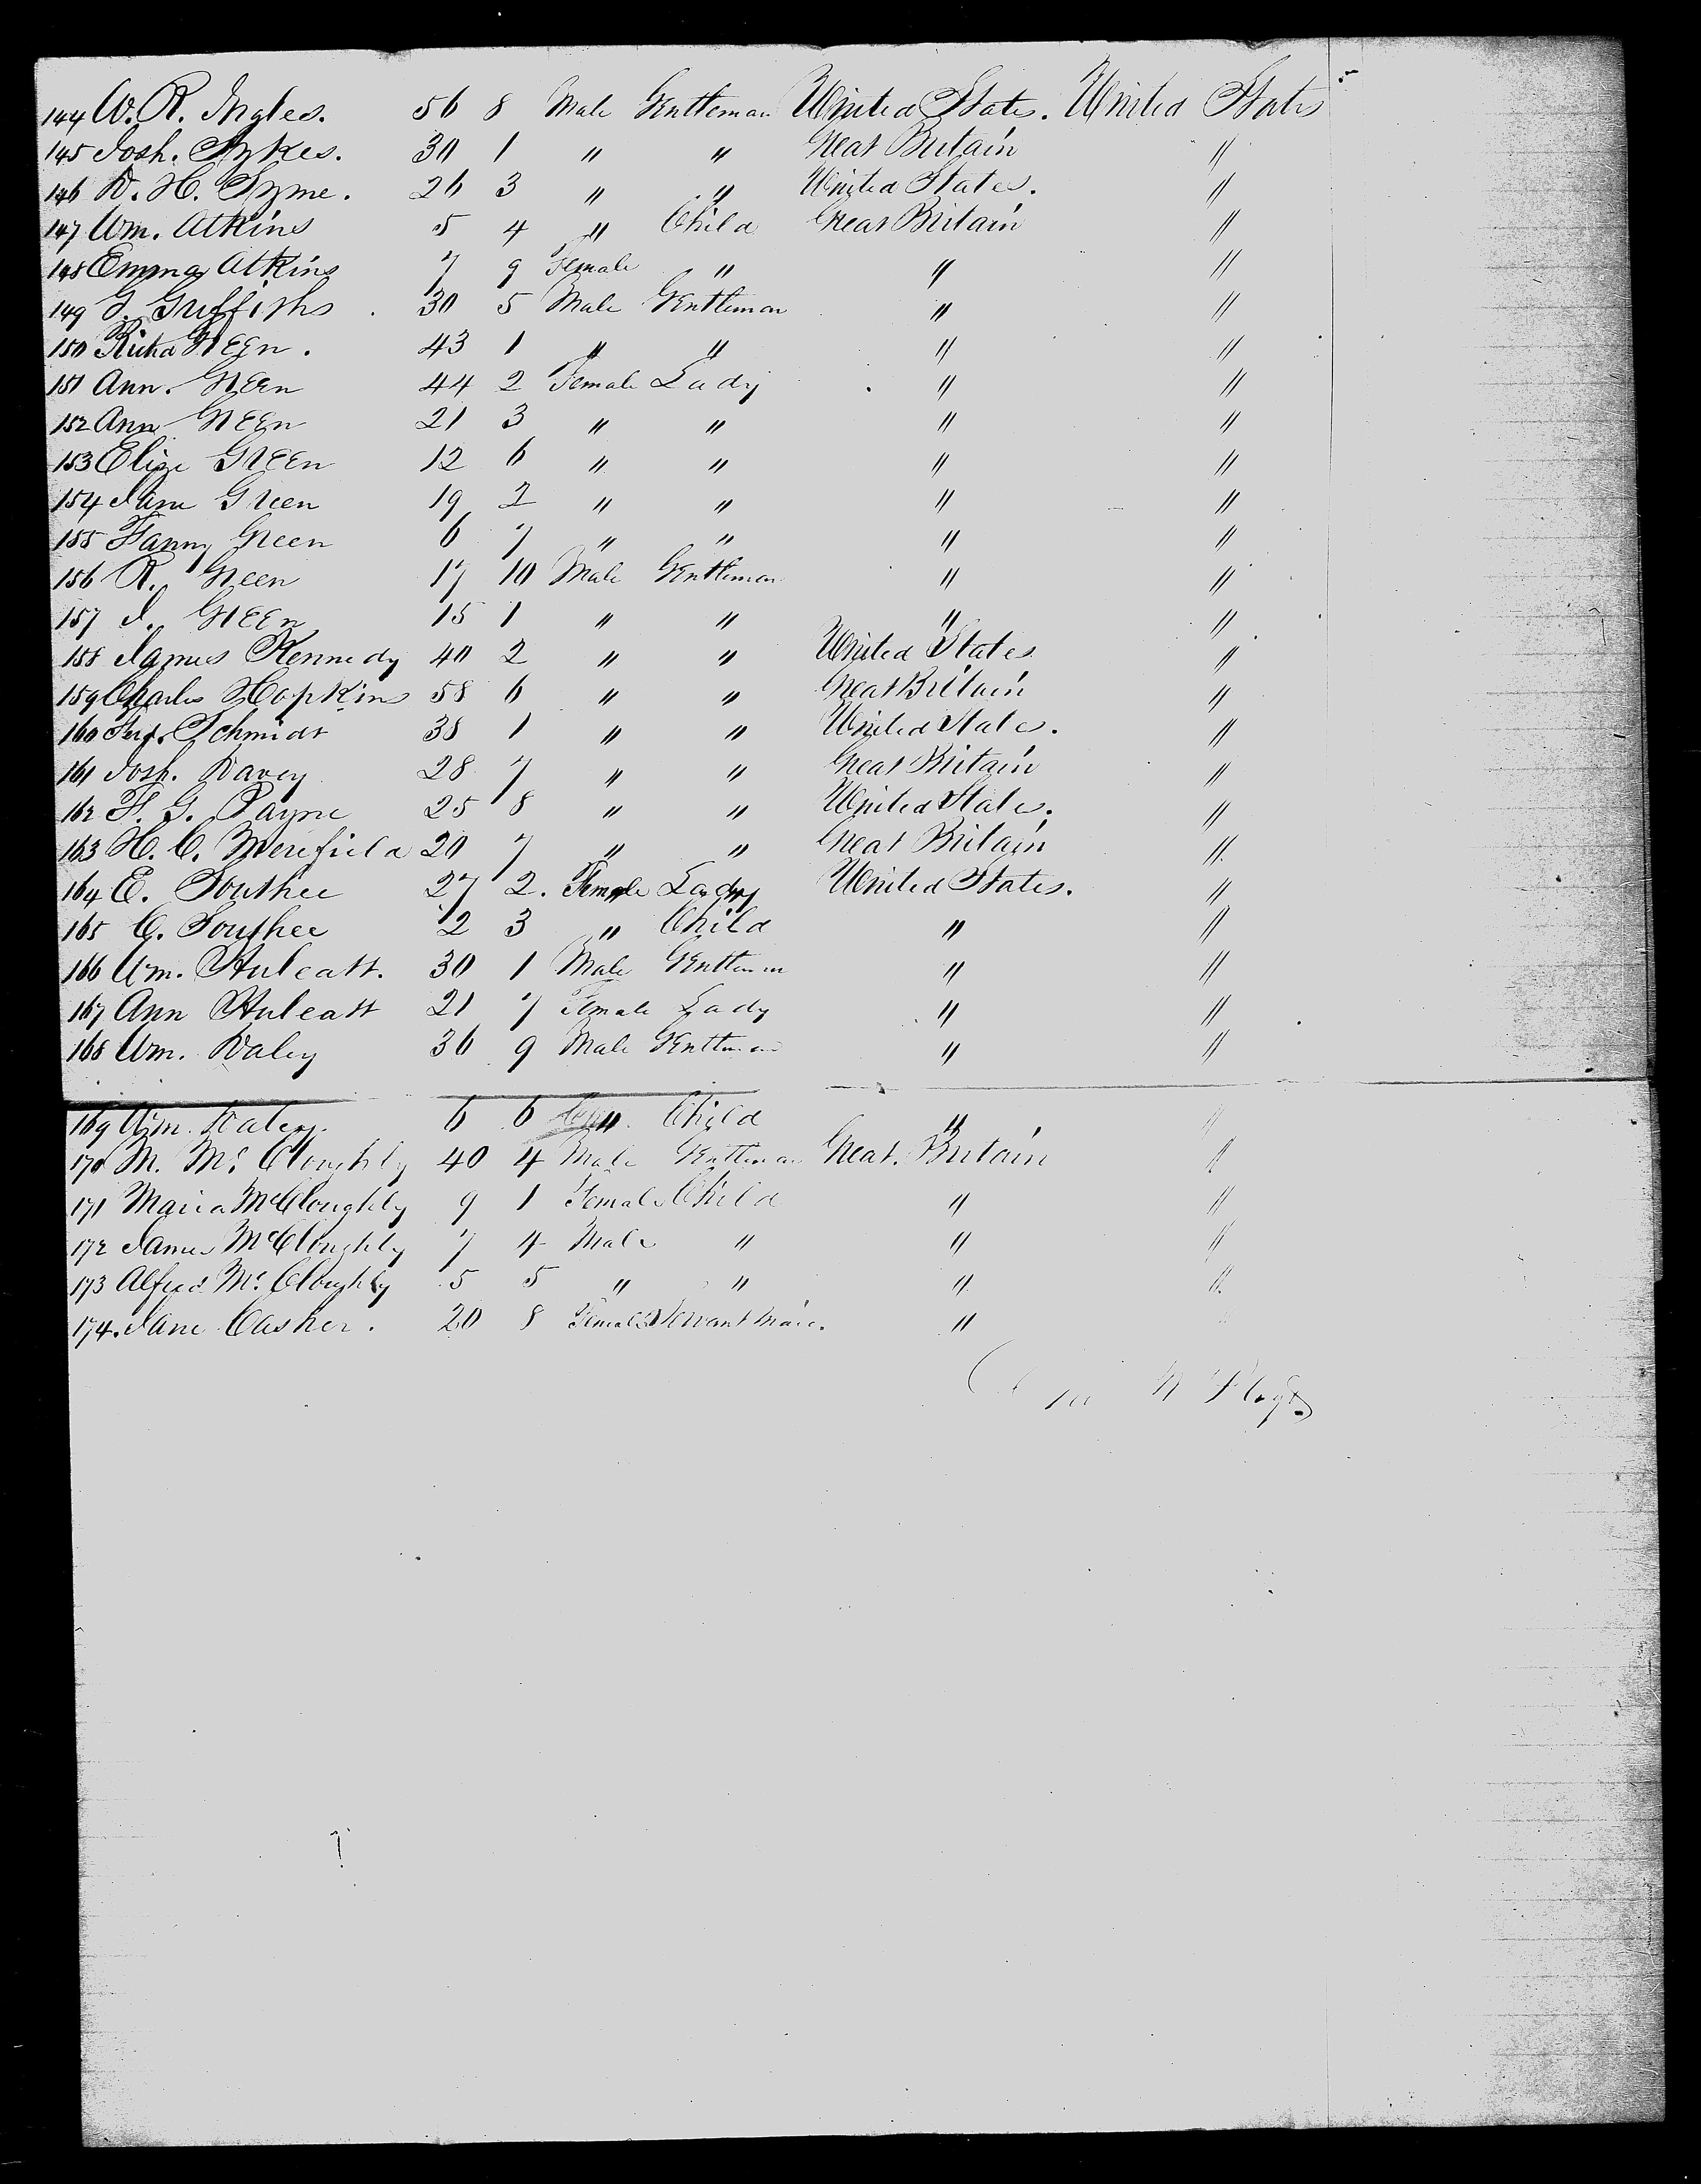 144 W. R. Ingles. 56 8 Male Gentleman United States. United States
145 Josh. Sykes. 30 1 " " Great Britain "
146 D. H. Syme. 26 3 " " United States. "
147 Wm. Atkins 5 4 " Child Great Britain "
148 Emma Atkins 7 9 Female " " "
149 G. Griffiths 30 5 Male Gentleman " "
150 Richd Green. 43 1 " " " "
151 Ann. Green 44 2 Female Lady " "
152 Ann Green 21 3 " " " "
153 Elize Green 12 6 " " " "
154 Jane Green 19 2 " " " "
155 Fanny Green 6 7 " " " "
156 R. Green 17 10 Male Gentleman " "
157 J. Green 15 1 " " " "
158 James Kennedy 40 2 " " United States "
159 Charles Hopkins 58 6 " " Great Britain "
160 Ferd. Schmidt 38 1 " " United States. "
161 Josh. Davey 28 7 " " Great Britain "
162 F. G. Payne 25 8 " " United States. "
163 H. C. Merefield 20 7 " " Great Britain "
164 E. Southee 27 2. Female Lady United States. "
165 C. Southee 2 3 " Child " "
166 Wm. Huleatt. 30 1 Male Gentleman " "
167 Ann Huleatt 21 7 Female Lady " "
168 Wm. Daley 36 9 Male Gentleman " "
169 Wm. Daley. 6 6 " Child " "
170 M. Mc Cloughly 40 4 Male Gentleman Great. Britain "
171 Maria McCloughly 9 1 Female Child " "
172 James McCloughly 7 4 Male " " "
173 Alfred Mc. Cloughly 5 5 " " " "
174. Jane Casher. 20 8 Female Servant Maid. " "